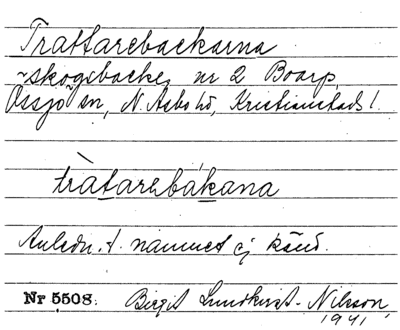 Trattarebackarna
~skogsbacke, nr 2 Boarp,
Össjö sn, N. Åsbo hd, Kristianstads l.
tràtarebákana
Anledn. t. namnet ej känd.
Nr 5508. Birgit Lundkvist-Nilsson,
1941